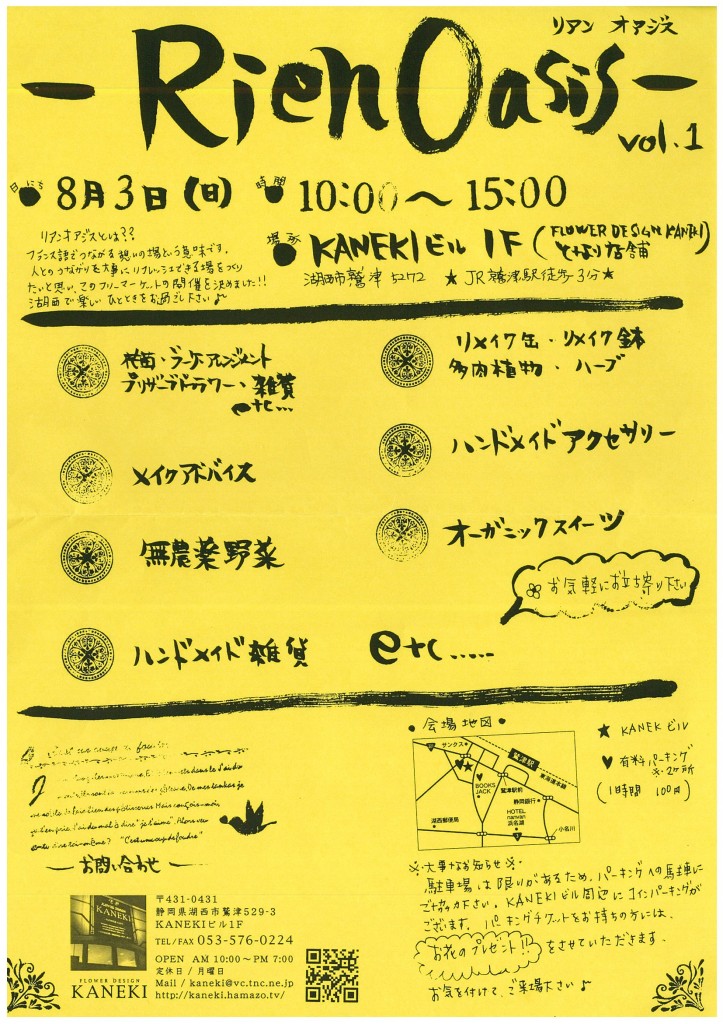 リアン オアジス
- Rien Oasis -
vol.1
日にち 8月3日(日) 時間 10:00~15:00
リアンオアジスとは??
フランス語でつながる憩いの場という意味です。
人とのつながりを大事にリフレッシュできる場をつくり
たいと思い、このフリーマーケットの開催を決めました!!
湖西で楽しいひとときをお過ごし下さい♪
場所 KANEKIビル 1F (FLOWER DESIGN KANEKI
となり店舗)
湖西市鷲津5272 ★JR鷲津駅徒歩3分★
花苗・ブーケ・アレンジメント
プリザーブドフラワー・雑貨
etc...
リメイク缶・リメイク鉢
多肉植物・ハーブ
メイクアドバイス
ハンドメイドアクセサリー
無農薬野菜
オーガニックスイーツ
お気軽にお立ち寄り下さい
ハンドメイド雑貨
etc.....
●会場地図●
★ KANEKビル
♥ 有料パーキング
※2ヶ所
(1時間 100円)
サンクス
鷲津駅
東海道本線
BOOKS
JACK
鷲津駅前
静岡銀行
湖西郵便局
HOTEL
nanvan
浜名湖
小名川
- お問い合わせ -
〒431-0431
静岡県湖西市鷲津529-3
KANEKIビル1F
TEL/FAX 053-576-0224
OPEN AM 10:00~PM 7:00
定休日 / 月曜日
Mail / kaneki@vc.tnc.ne.jp
http://kaneki.hamazo.tv/
KANEKI
FLOWER DESIGN
KANEKI
※大事なお知らせ※
駐車場は限りがあるため、パーキングへの駐車に
ご協力下さい。KANEKIビル周辺にコインパーキングが
ございます。パーキングチケットをお持ちの方には、
お花のプレゼント!!をさせていただきます。
お気を付けて、ご来場下さい♪